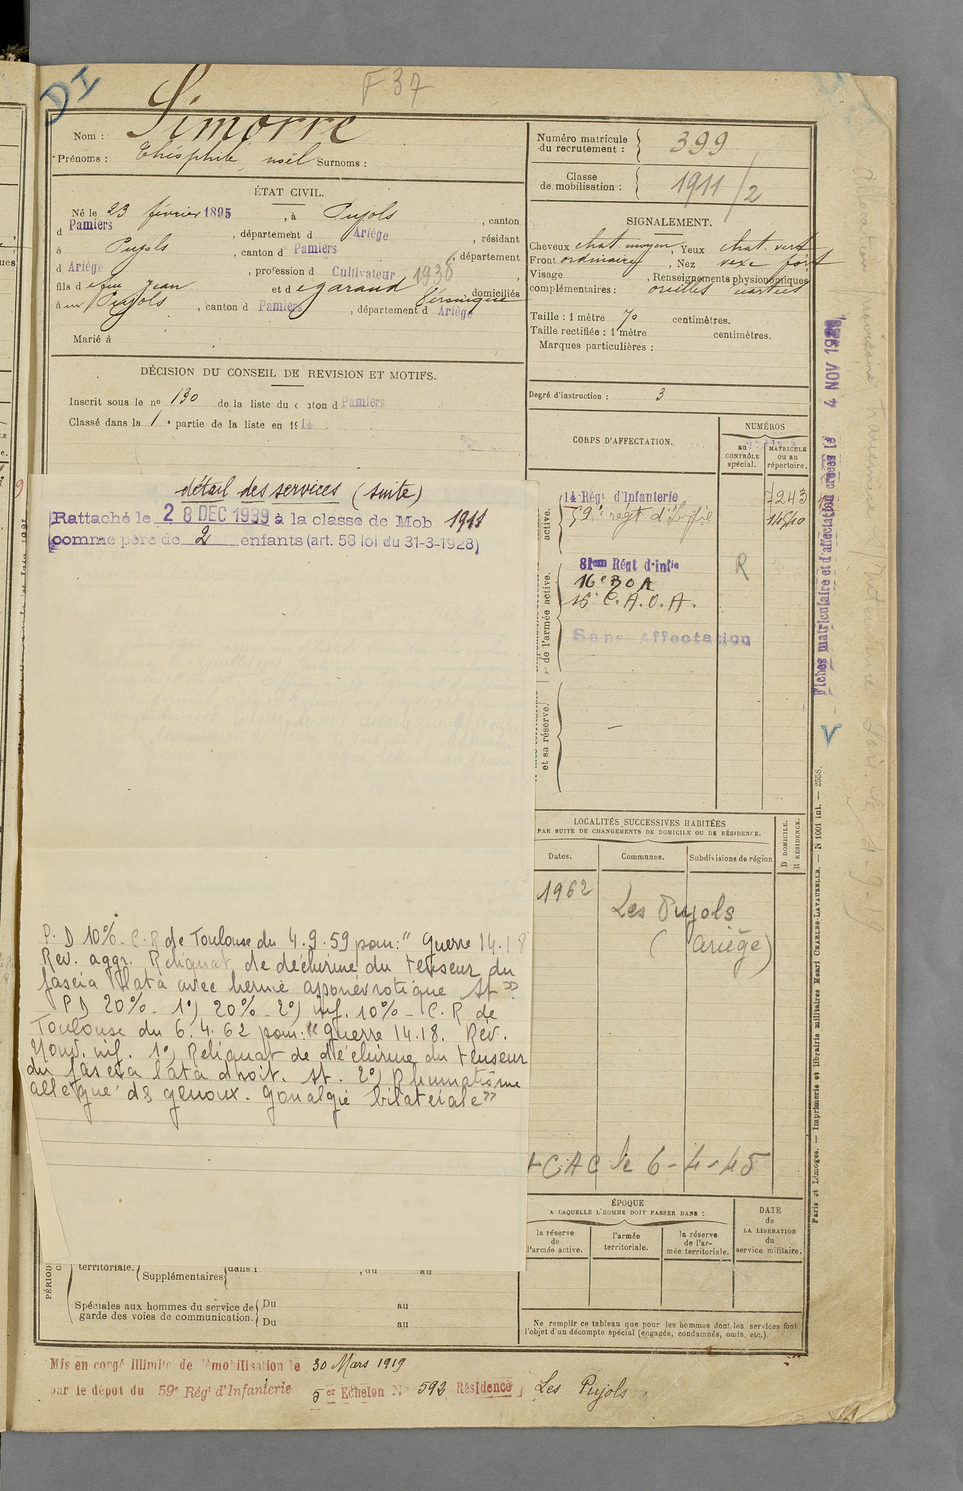 DI
F 37
Nom : Simorre
Prénoms : Théophile noël Surnoms :
Numéro matricule du recrutement : 399
Classe de mobilisation : 1911/2
ÉTAT CIVIL.
Né le 23 février 1895, à Pujols, canton
d Pamiers, département d Ariège, résidant
à Pujols, canton d Pamiers, département
d Ariège, profession d Cultivateur 1938,
fils d e feu Jean et d e garaud Véronique, domiciliés
à Pujols, canton d Pamiers, département d Ariège
Marié à
SIGNALEMENT.
Cheveux chat. moyen, Yeux chat. vert
Front ordinaire, Nez vexe fort
Visage, Renseignements physionomiques
complémentaires : oreilles écartées
Taille : 1 mètre 70 centimètres.
Taille rectifiée : 1 mètre centimètres.
Marques particulières :
Degré d'instruction : 3
DÉCISION DU CONSEIL DE REVISION ET MOTIFS.
Inscrit sous le nº 130 de la liste du canton d Pamiers
Classé dans la 1e partie de la liste en 1914
CORPS D'AFFECTATION.
NUMÉROS
au CONTRÔLE spécial.
MATRICULE ou au répertoire.
active.
14 Régt d'Infanterie 7243
59e régt d'Inf
de l'armée active.
81em Régt d'infie R
16e B O A
16e C. A. O. A.
Sans Affectation
et sa réserve.
détail des services (suite)
Rattaché le 28 DEC 1939 à la classe de Mob 1911
comme père de 2 enfants (art. 58 loi du 31-3-1928)
P. D 10% - C. R de Toulouse du 4.9.59 pour : " Guerre 14.18
Rev. aggr. Reliquat de déchirure du tenseur du
fascia lata avec hernie aponévrotique St "
PD 20% - 1º) 20% - 2º) inf. 10% - C. R de
Toulouse du 6.4.62 pour : " guerre 14.18. Rév.
Nouv. inf. 1º) Reliquat de déchirure du tenseur
du fascia lata droit. st. 2º) Rhumatisme
allégué ds genoux. Gonalgie bilatérale "
LOCALITÉS SUCCESSIVES HABITÉES
PAR SUITE DE CHANGEMENTS DE DOMICILE OU DE RÉSIDENCE.
Dates.
Communes.
Subdivisions de région
D DOMICILE.
R RÉSIDENCE.
1962 Les Pujols
(Ariège)
CAC le 6-4-45
ÉPOQUE
A LAQUELLE L'HOMME DOIT PASSER DANS :
la réserve de l'armée active.
l'armée territoriale.
la réserve de l'armée territoriale.
DATE de LA LIBÉRATION du service militaire.
PÉRIOD
territoriale. Supplémentaires dans l , du au
Spéciales aux hommes du service de garde des voies de communication.
Du au
Du au
Ne remplir ce tableau que pour les hommes dont les services font
l'objet d'un décompte spécial (engagés, condamnés, omis, etc.).
Mis en congé illimité de démobilisation le 30 Mars 1919
par le dépôt du 59e Régt d'Infanterie 5er Echelon Nº 592 Résidence Les Pujols
Fiches matriculaire et d'affectation créées le 4 NOV 1928
V
Paris et Limoges. — Imprimerie et librairie militaires Henri CHARLES-LAVAUZELLE. — N 1001 int. — 2558.